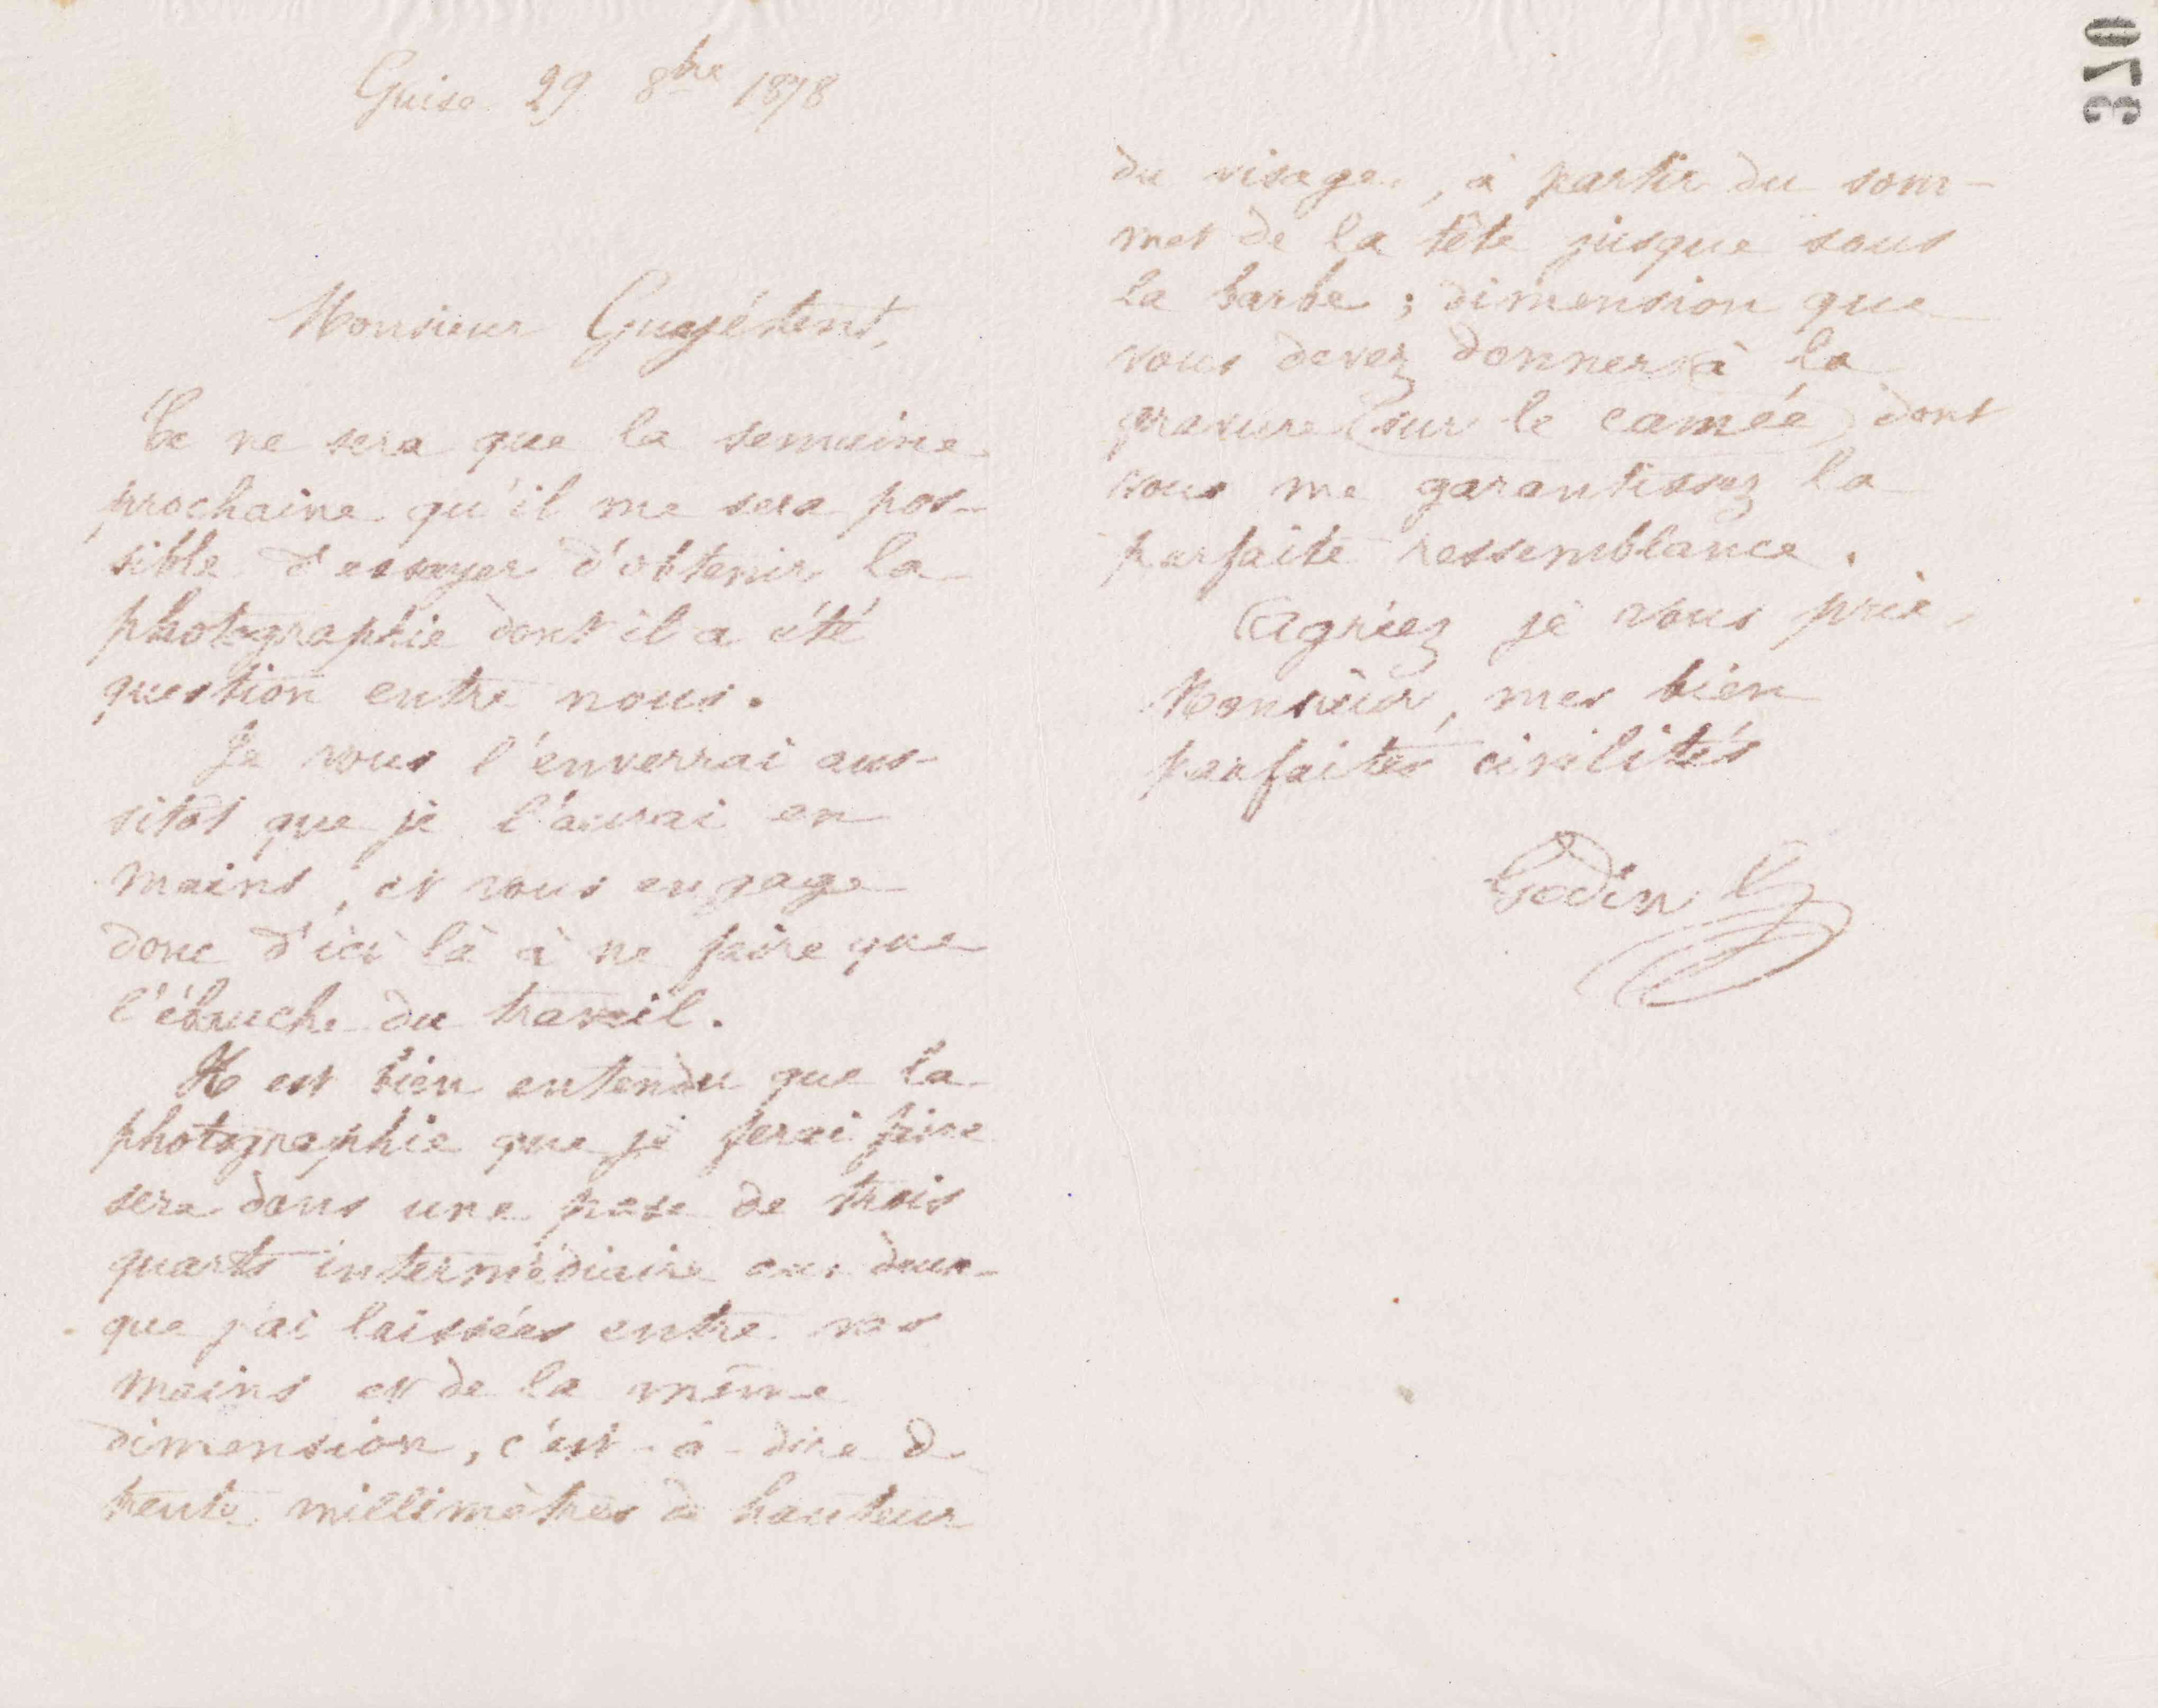 370
Guise 29 8bre 1878
Monsieur Guyétent,
Ce ne sera que la semaine
prochaine qu'il me sera pos-
sible d'essayer d'obtenir la
photographie dont il a été
question entre nous.
Je vous l'enverrai aus-
sitôt que je l'aurai en
mains, et vous engage
donc d'ici là à ne faire que
l'ébauche du travail.
Il est bien entendu que la
photographie que je ferai faire
sera dans une pose de trois
quarts intermédiaire aux deux
que j'ai laissées entre vos
mains et de la même
dimension, c'est-à-dire de
trente millimètres de hauteur
du visage, à partir du som-
met de la tête jusque sous
la barbe ; dimension que
vous devez donner à la
gravure (sur le camée) dont
vous me garantissez la
parfaite ressemblance.
Agréez je vous prie,
Monsieur, mes bien
parfaites civilités
Godin